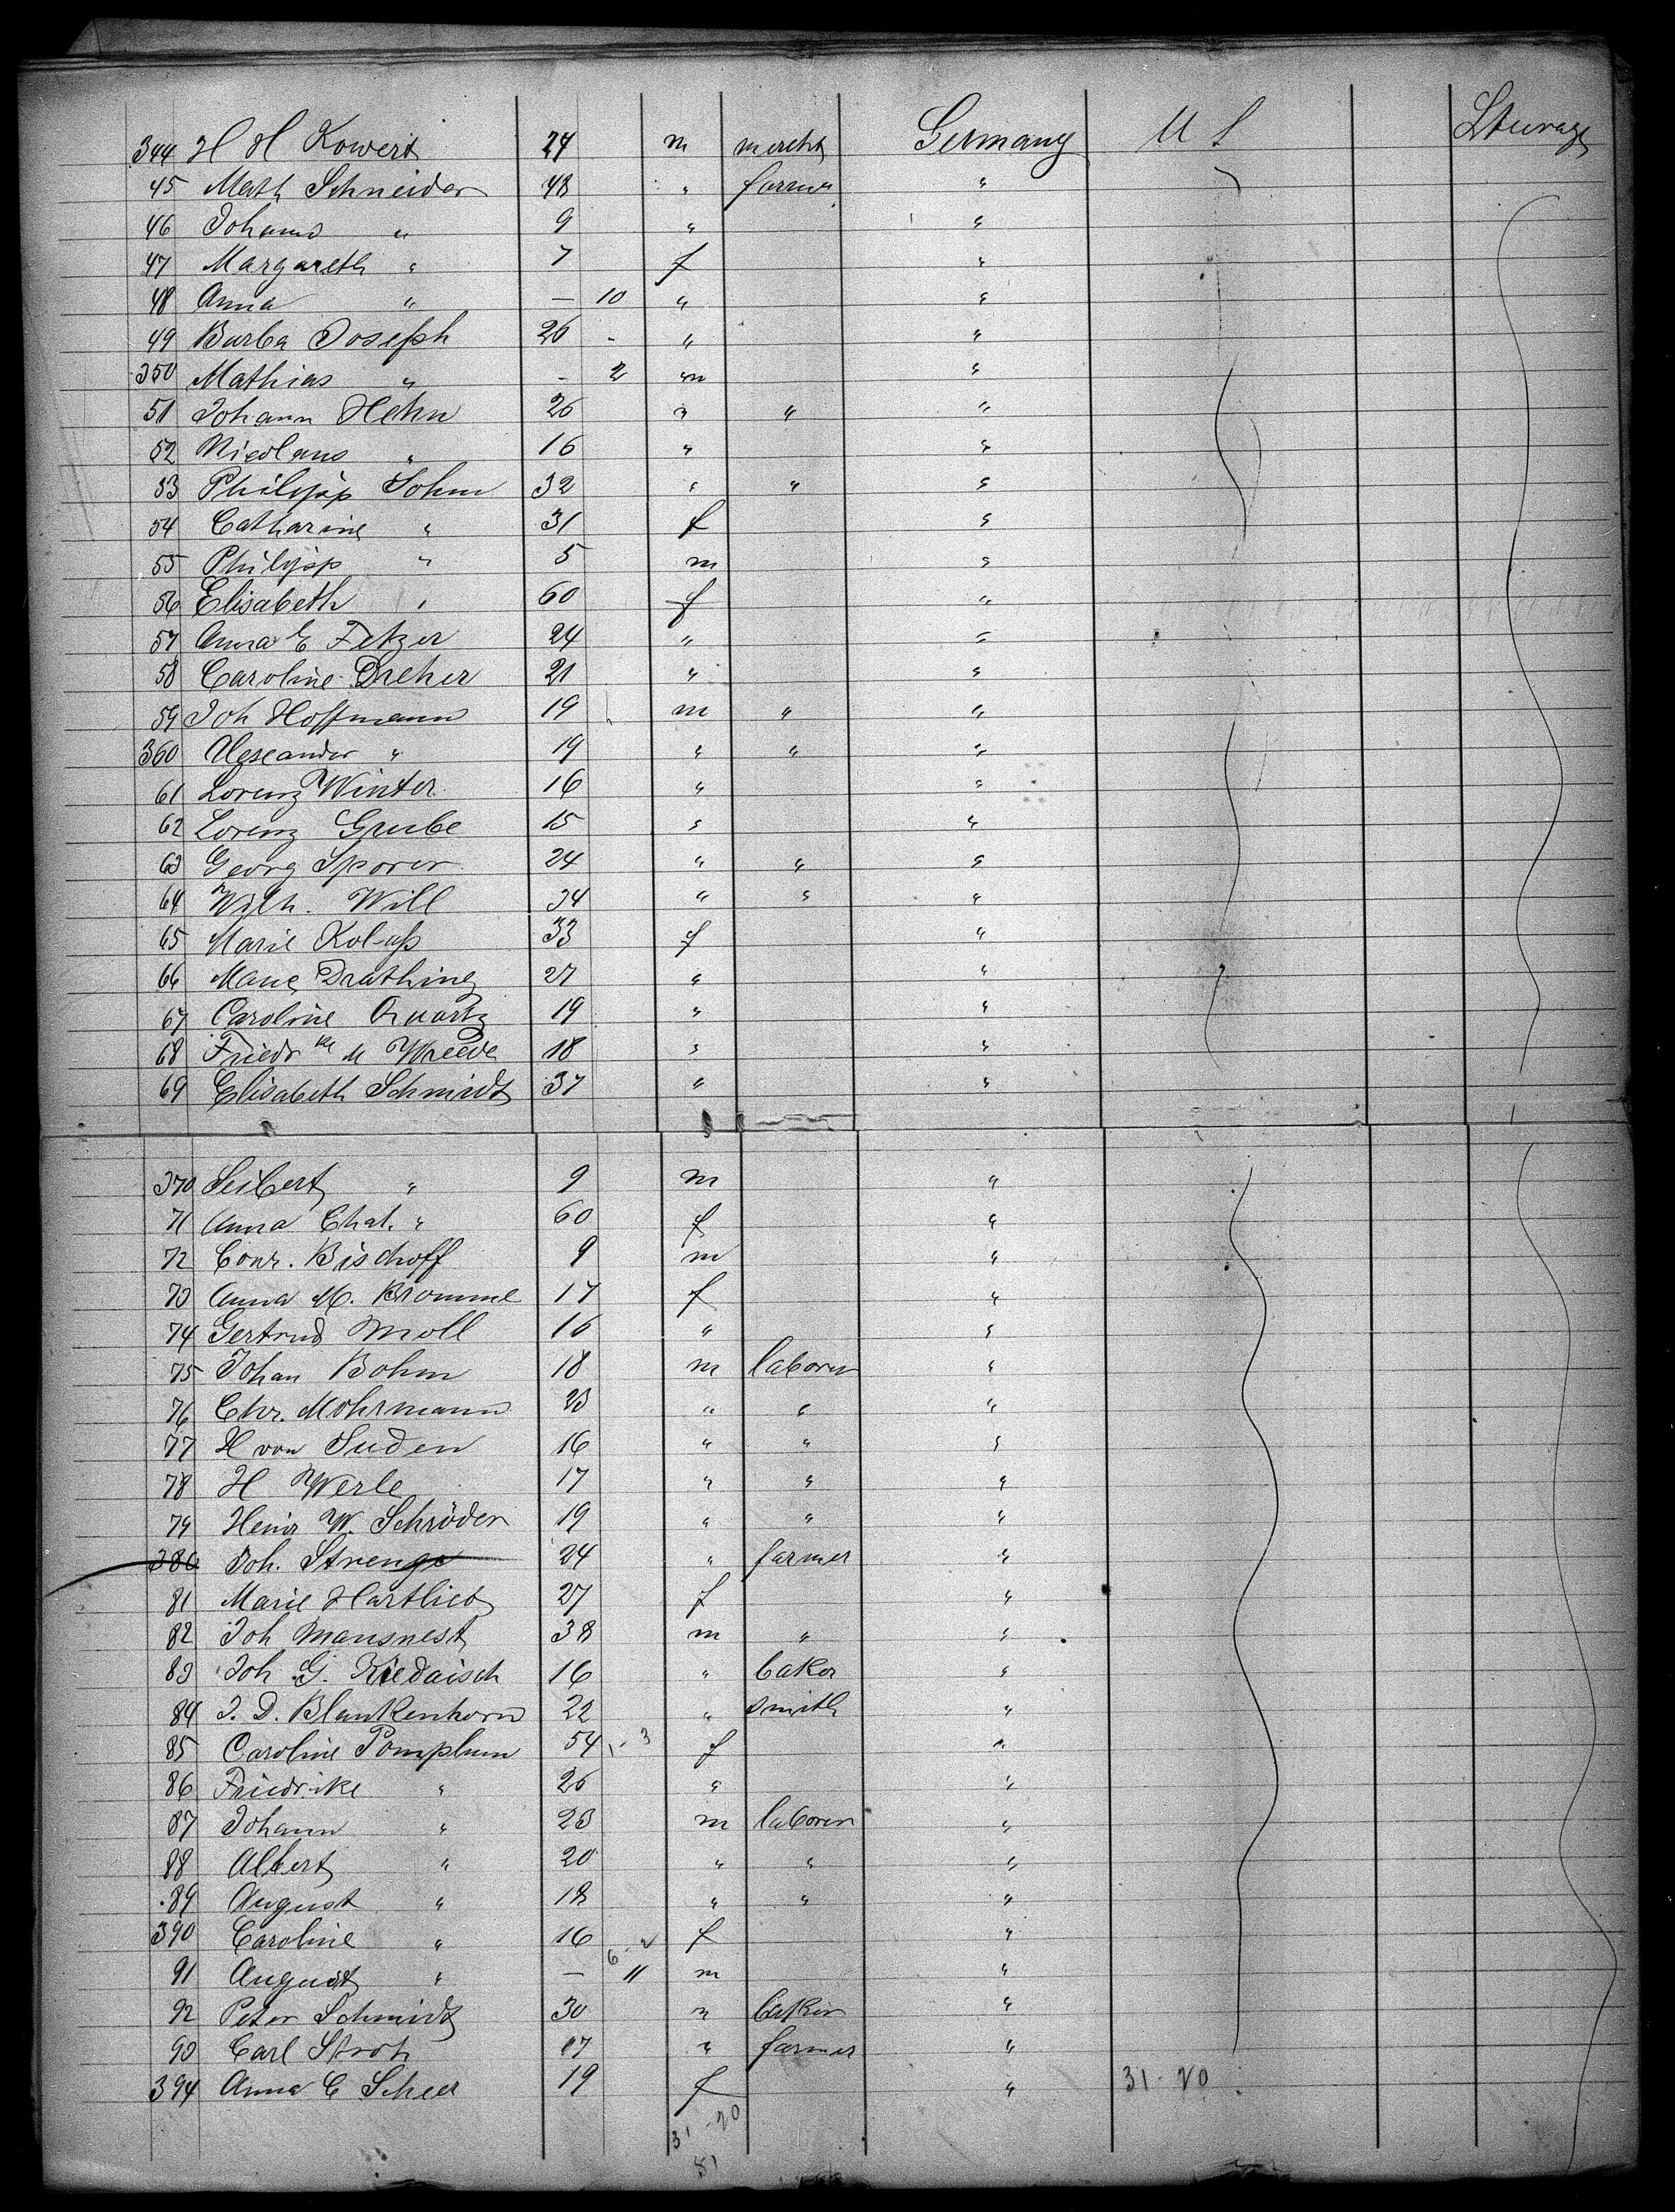 344 H H Kowert 24 m mercht Germany U S Steerage
45 Math Schneider 48 " farmer "
46 Johann " 9 " "
47 Margareth " 7 f "
48 Anna " — 10 " "
49 Barba Joseph 26 - " "
350 Mathias " - 2 m "
51 Johann Hehn 26 " " "
52 Nicolaus " 16 " "
53 Philipp Sohm 32 " " "
54 Catharine " 31 f "
55 Philipp " 5 m "
56 Elisabeth " 60 f "
57 Anna E Fetzer 24 " "
58 Caroline Dreher 21 " "
59 Joh Hoffmann 19 m " "
360 Alexander " 19 " " "
61 Lorenz Winter 16 " "
62 Lorenz Grube 15 " "
63 Georg Sporer 24 " " "
64 Wilh. Will 34 " " "
65 Marie 33 f "
66 Marie Drathing 27 " "
67 Caroline Quartz 19 " "
68 Friedr ke M Wreede 18 " "
69 Elisabeth Schmidt 37 " "
370 Seibert " 9 m "
71 Anna Chat. " 60 f "
72 Conr. Bischoff 9 m "
73 Anna M. Bromme 17 f "
74 Gertrud Moll 16 " "
75 Johan Bohm 18 m laborer "
76 Chr. Mohrmann 23 " " "
77 H von Suden 16 " " "
78 H Werle 17 " " "
79 Heinr W. Schröder 19 " " "
380 Joh. Strenge 24 " farmer "
81 Marie Hartlieb 27 f "
82 Joh Mausnest 38 m " "
83 Joh G. Riedaisch 16 " baker "
84 J. D. Blankenhorn 22 " smith "
85 Caroline Pomplum 54 1-3 f "
86 Friedrike " 26 " "
87 Johann " 23 m laborer "
88 Albert " 20 " " "
89 August " 18 " " "
390 Caroline " 16 f "
6-2
91 August " — 11 m "
92 Peter Schmidt 30 " baker "
93 Carl Stroh 17 " farmer "
394 Anna E Scheer 19 f " 31-20
31-20
51